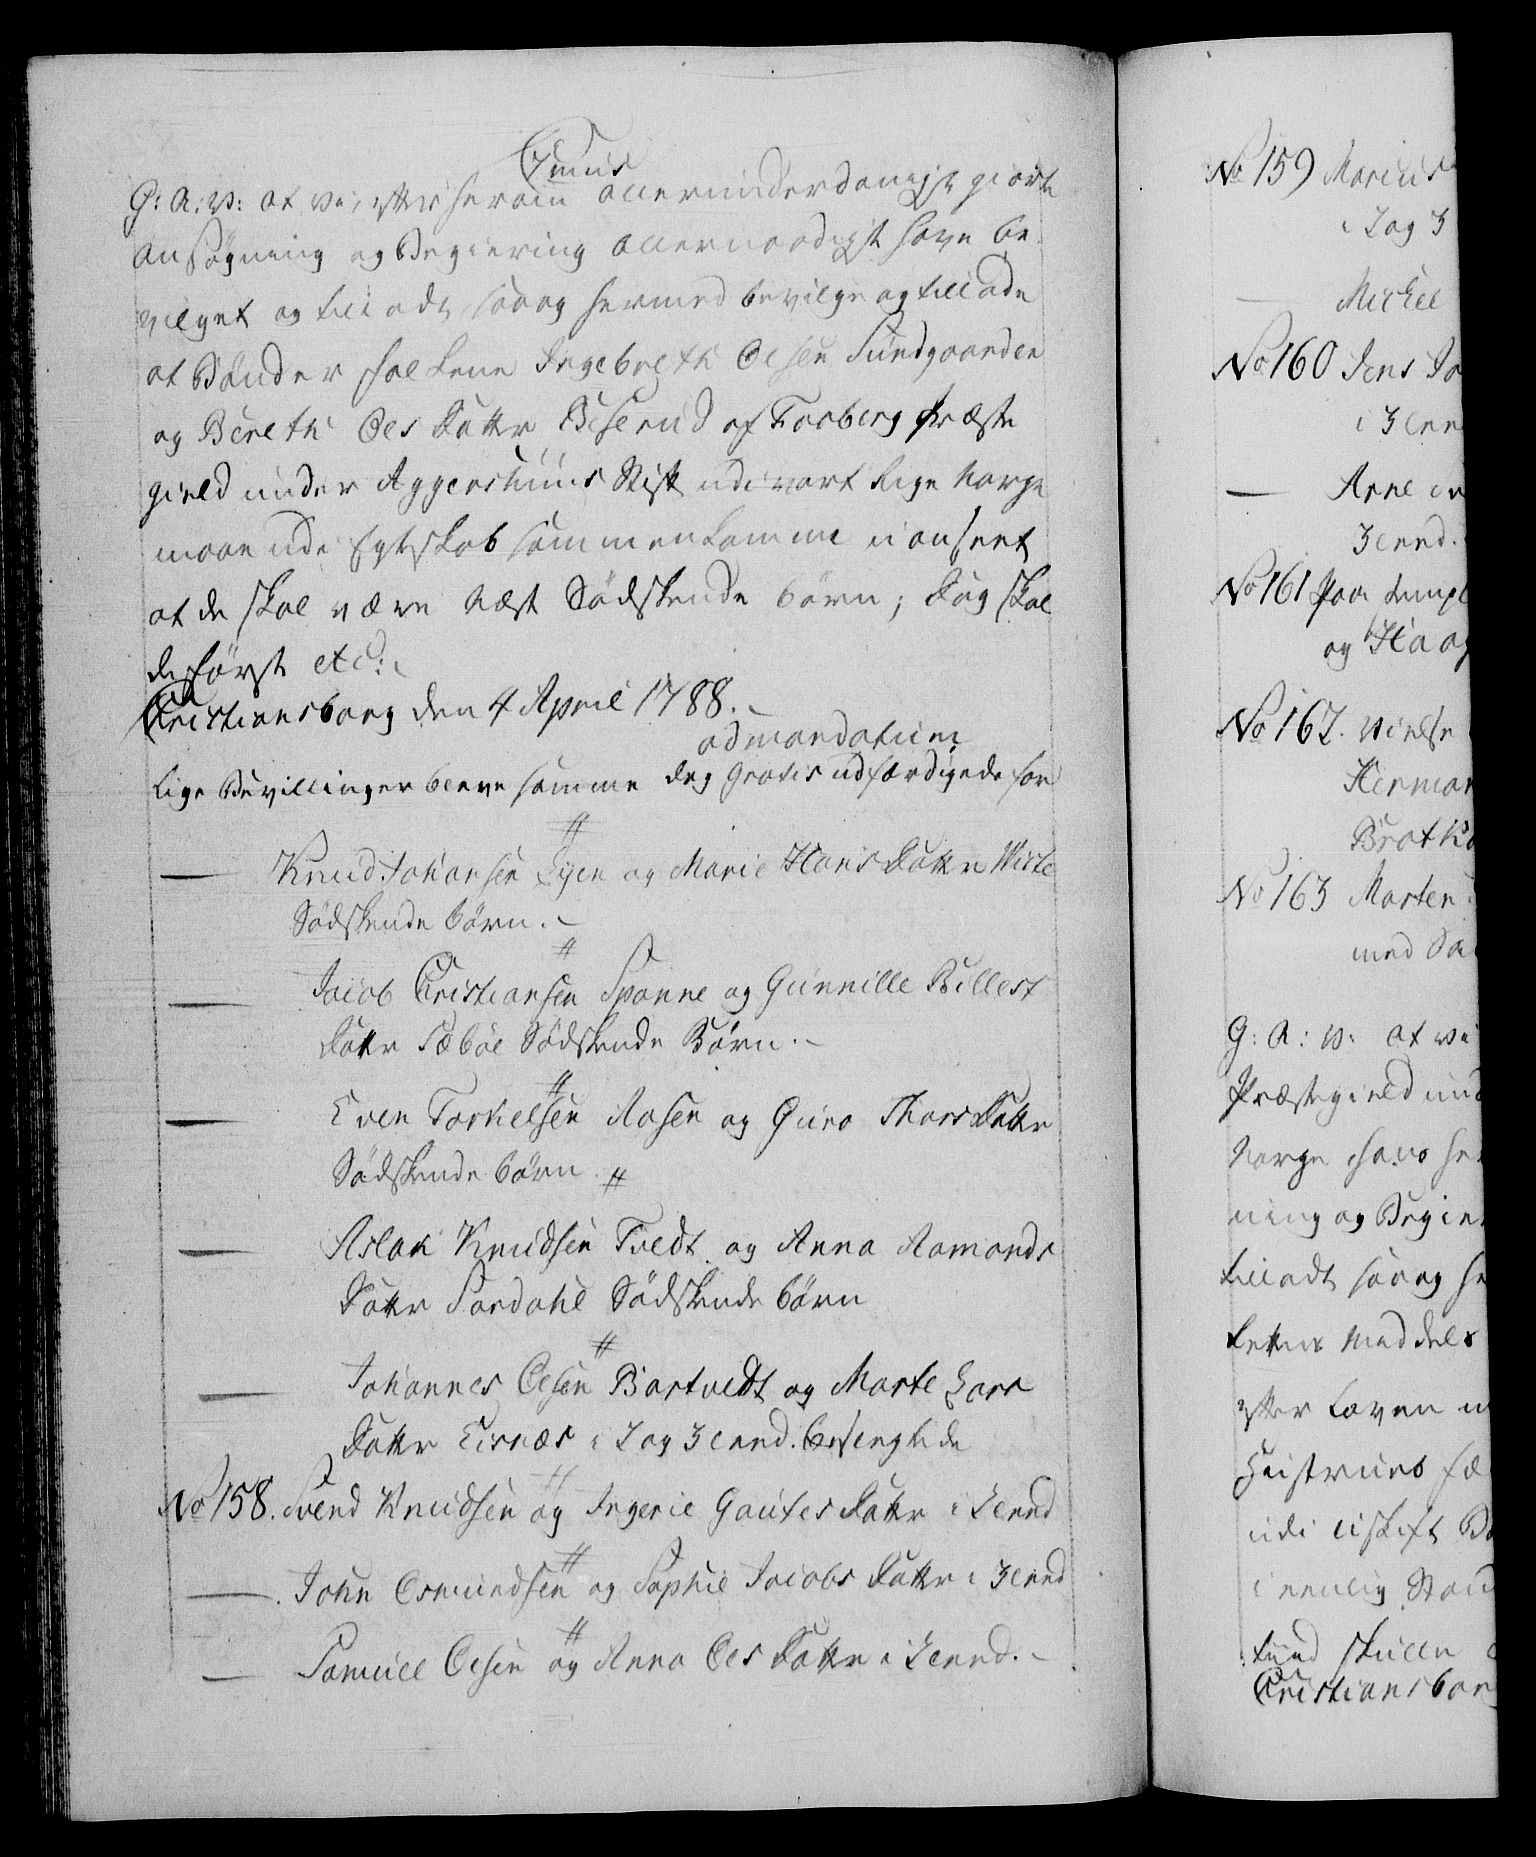 G: A: V: at vi, efter herom allerunderdanigst giorte
Ansøgning og Begiering allernaadigst have be-
vilget og tilladt, saa og hermed bevilge og tillade
at Bønder folkene Ingebreth Olsen Sundgaarden
og Bereth Oes Datter Biserud af Foaberg Præste
gield under Aggershuus Stift udi vort Rige Norge
maae udi Egteskab sammenkomme uanseet
at de skal være Næst Sødskende børn; Dog skal
de først etc:
Christiansborg den 4 April 1788.
ad mandatum
Lige Bevillinger bleve samme Dag Gratis udfærdigede for
Knud Johansen Eyen og Marie Hans Datter Wirke
Sødskende børn.
Jacob Christiansen Spanne og Gunnille Billest
Datter Sæbøe Sødskende Børn.
Even Torkelsen Aasen og Guro Thors Datter
Sødskende børn.
Aslak Knudsen Tvedt og Anna Aamonds
Datter Sordahl Sødskende børn
Johannes Olsen Bartvedt og Marte Lars
Datter Lisnæs i 2 og 3 Leed. besvogrede
No 158. Svend Knudsen og Ingerie Gautes Datter i 2 Leed
John Osmundsen og Sophie Jacobs Datter i 3 Leed
Samuel Olsen og Anna Oes Datter i 2 Leed.
No 159 Marcus
i 2 og 3
Michel
No 160 Jens Jo
i 3 Lee
Arne
3 Leed.
No 161 Paa
og Haag
No 162. Vielse
Herman
No 163 Morten
med
G: A: V: at vi
Præstegield und
Norge
ning og Begier
tilladt saa og he
meddelt
efter Loven
Hustrues
udi uskift Bo
i eenlig Stand
skulle
Christiansborg